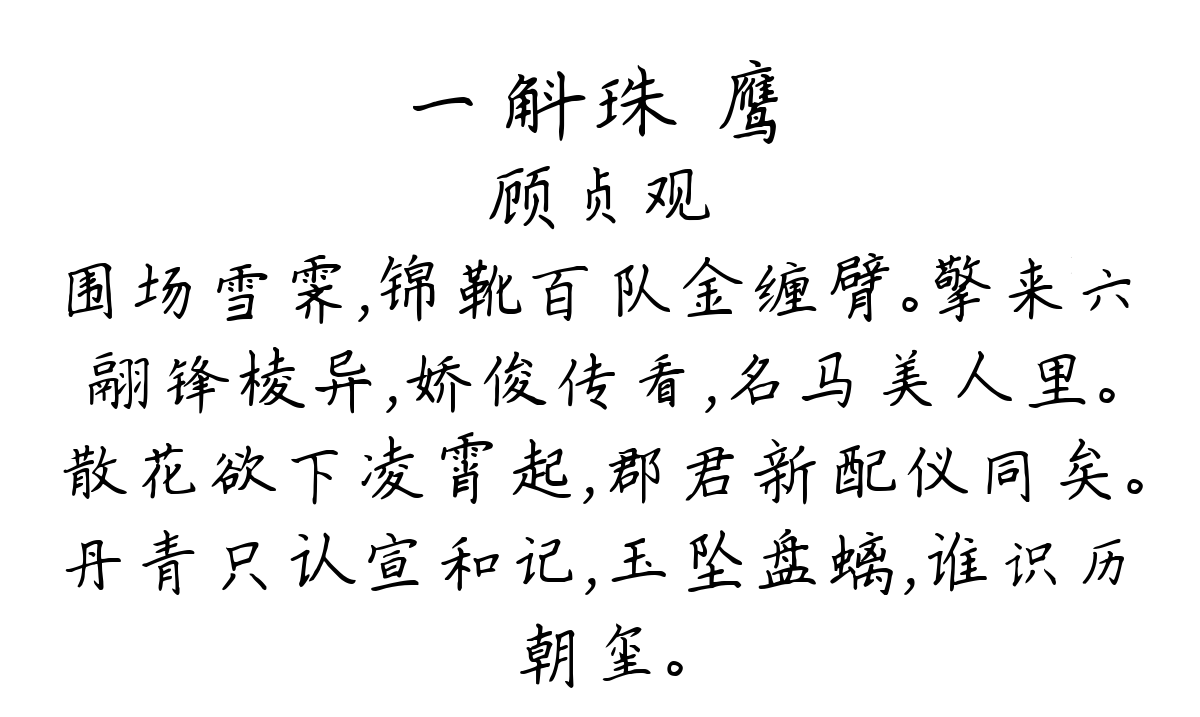 一斛珠 鹰
顾贞观
围场雪霁,锦靴百队金缠臂。擎来六
翮锋棱异,娇俊传看,名马美人里。
散花欲下凌霄起,郡君新配仪同矣。
丹青只认宣和记,玉坠盘螭,谁识历
朝玺。